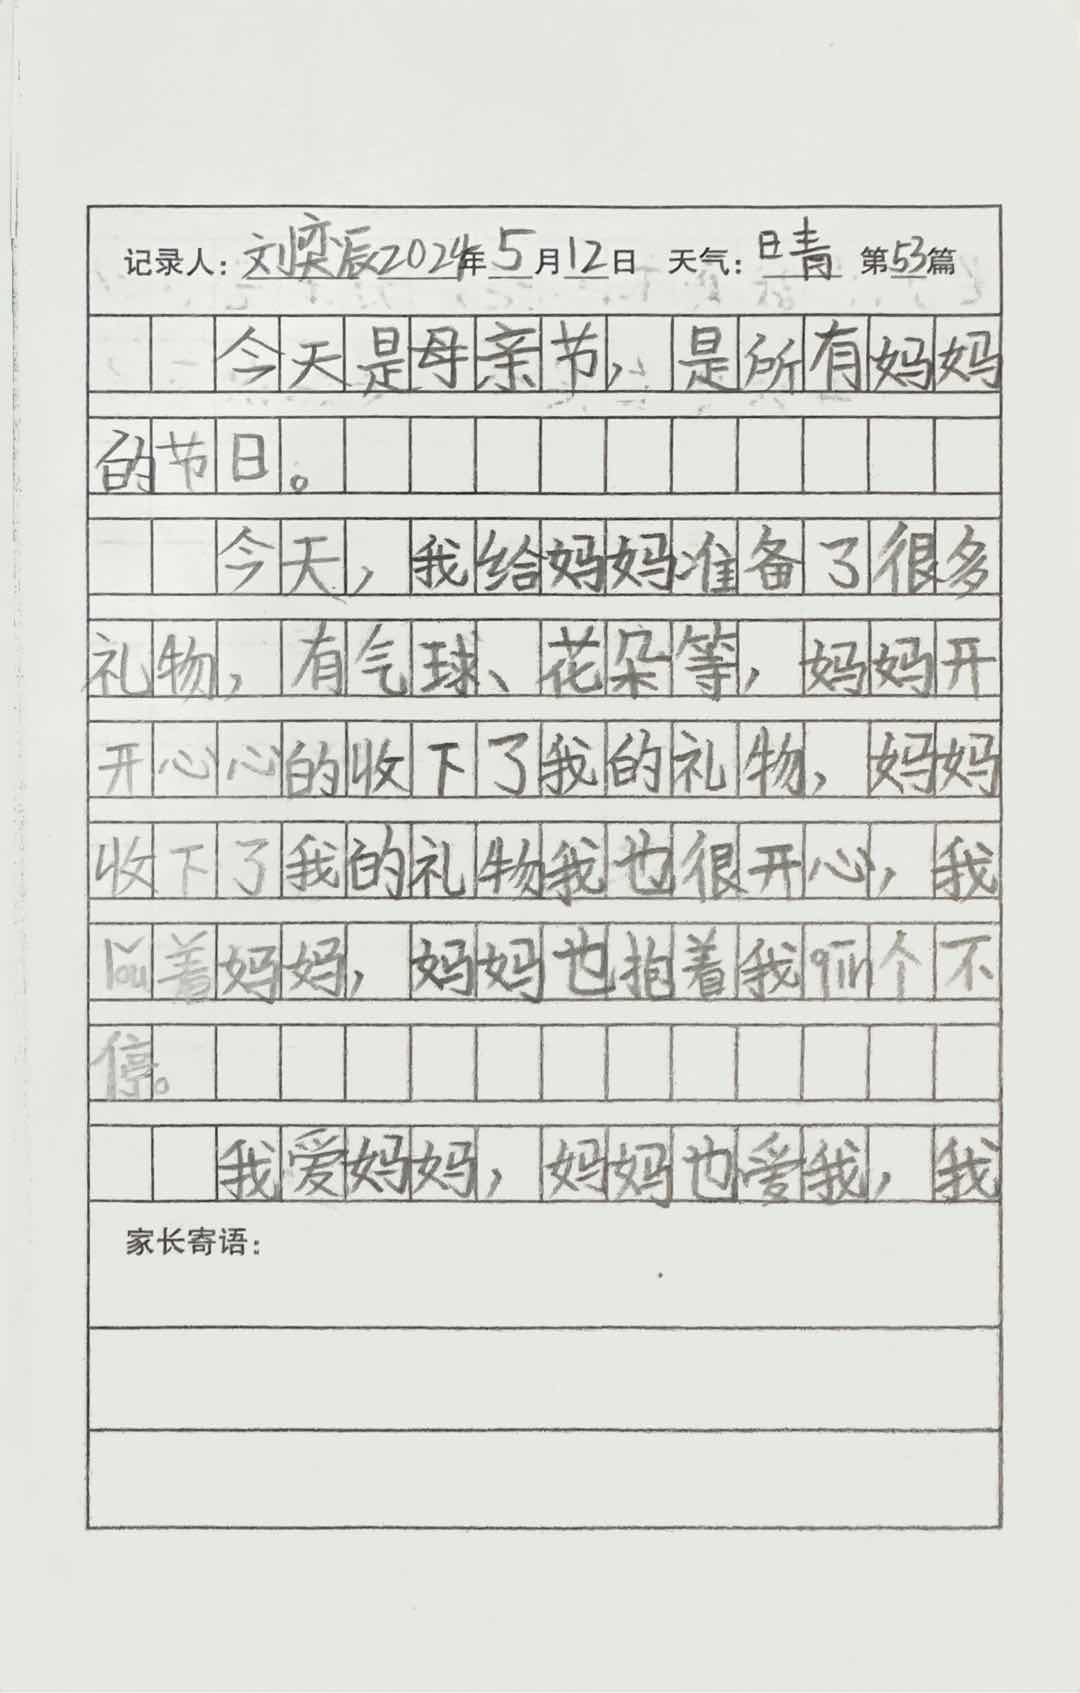 记录人：刘奕辰2024年5月12日 天气：晴 第53篇
今天是母亲节，是所有妈妈
的节日。
今天，我给妈妈准备了很多
礼物，有气球、花朵等，妈妈开
开心心的收下了我的礼物，妈妈
收下了我的礼物我也很开心，我
lǒu着妈妈，妈妈也抱着我qīn个不
停。
我爱妈妈，妈妈也爱我，我
家长寄语：